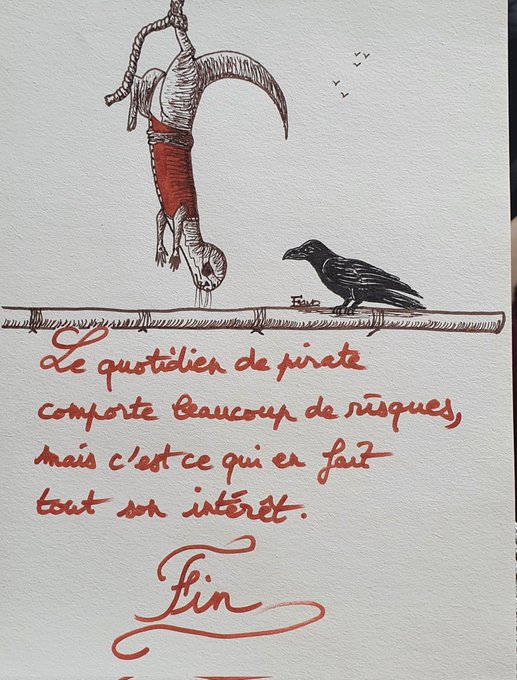 Le quotidien de pirate
comporte beaucoup de risques,
mais c'est ce qui en fait
tout son intérêt.
Fin